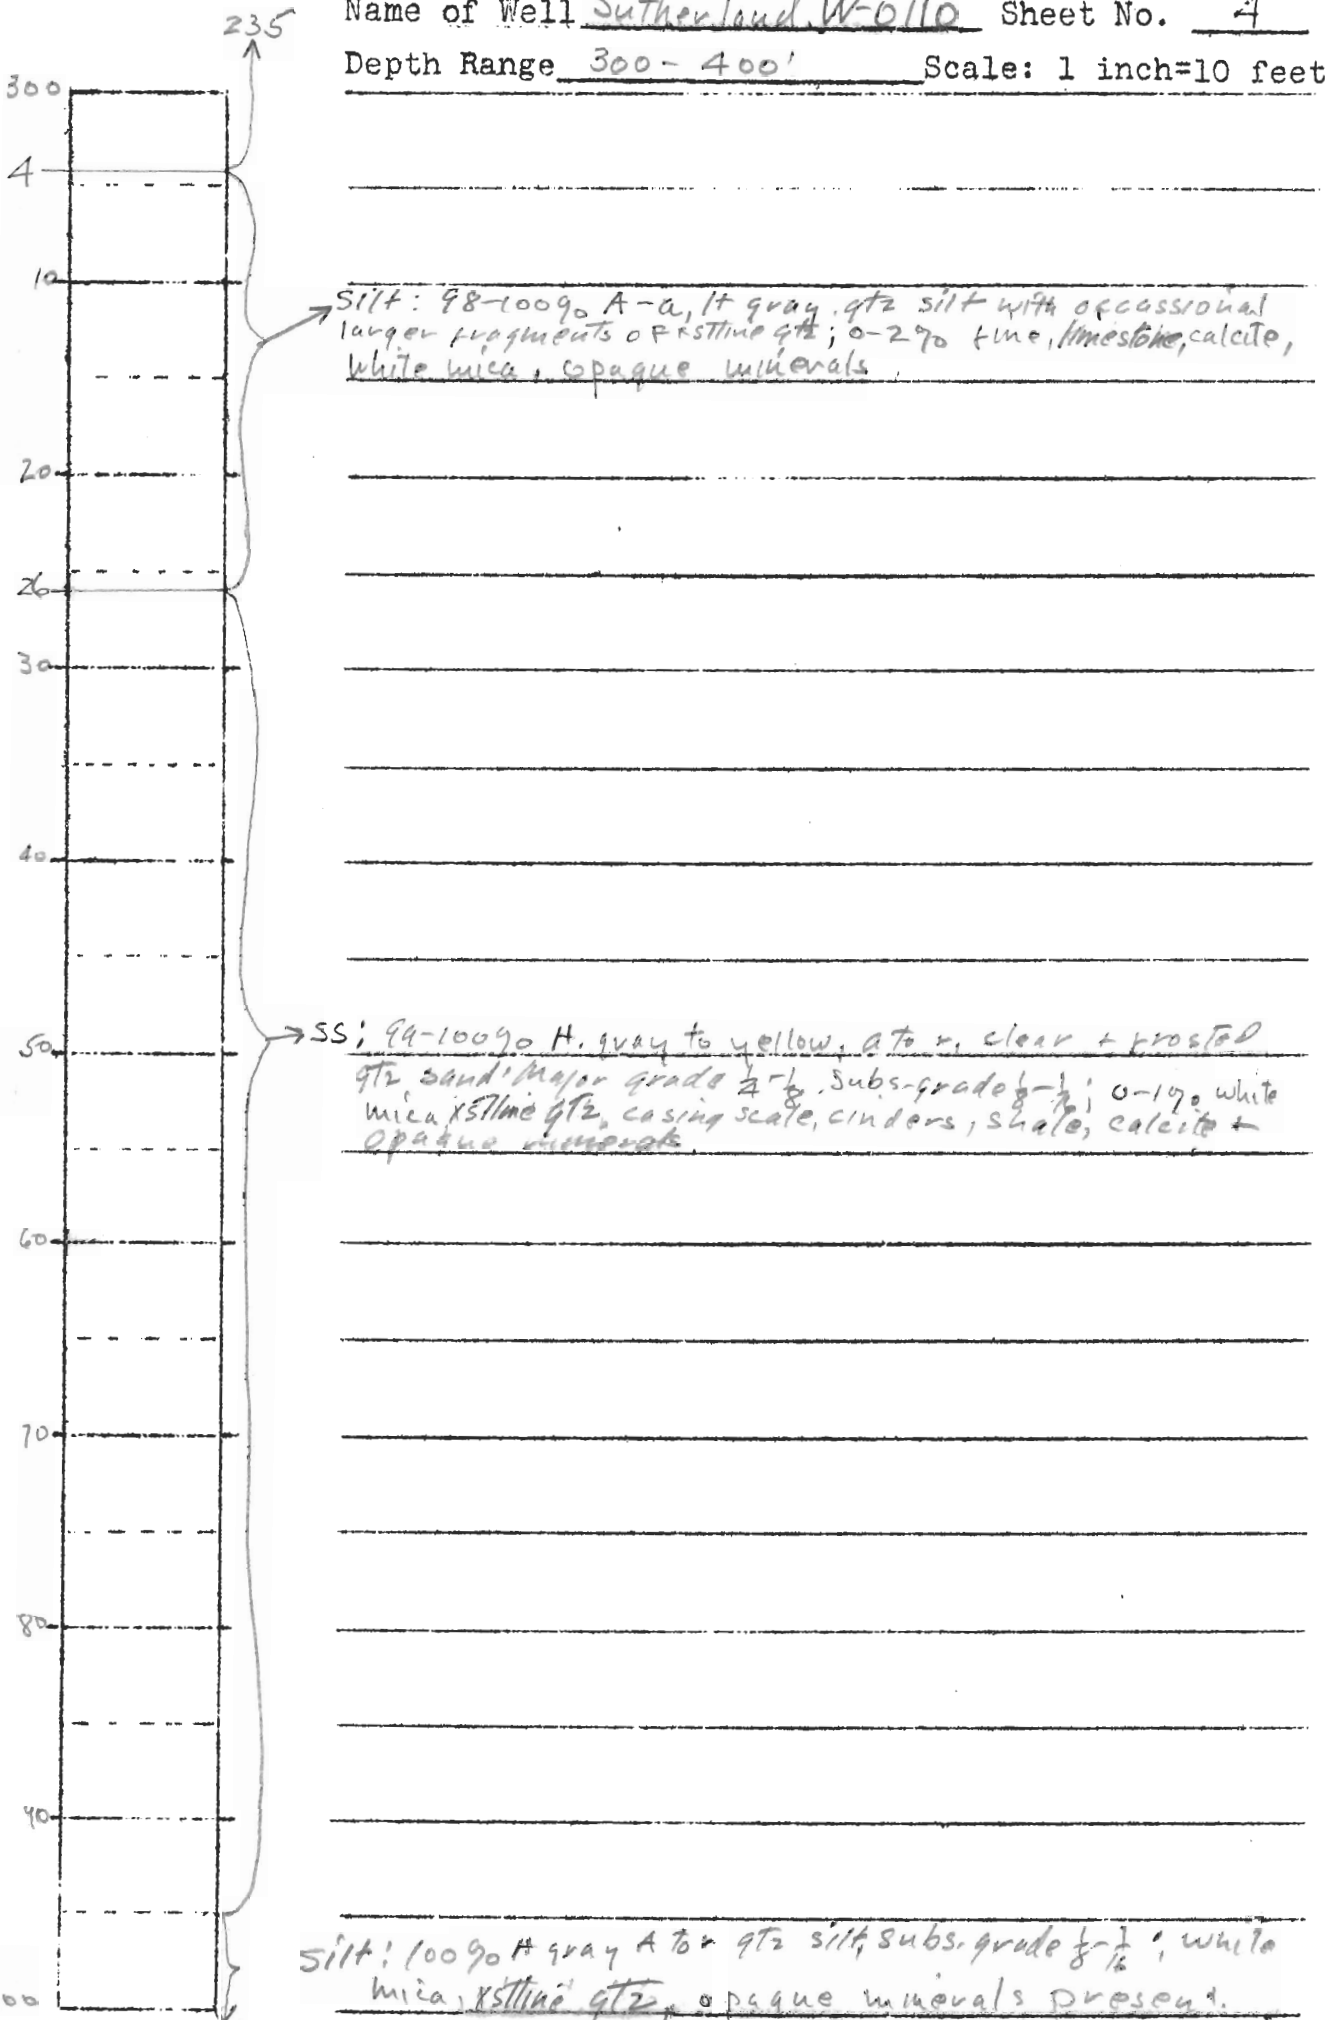 235
Name of Well Sutherland W-0110 Sheet No. 4
Depth Range 300 - 400' Scale: 1 inch=10 feet
300
4
10
Silt: 98-100% A-a, lt gray, qtz silt with occassional
larger fragments of xstlline qtz; 0-2% fine, limestone, calcite,
white mica, opaque minerals
20
26
30
40
SS: 99-100% lt. gray to yellow, a to r, clear + frosted
50
qtz sand. Major grade 1/4-1/8. Subs-grade; 0-1% white
mica, xstlline qtz, casing scale, cinders, shale, calcite +
opaque minerals
60
70
80
90
Silt: 100% lt gray A to r qtz silt, subs. grade 1/8-1/16; white
mica, xstlline qtz, opaque minerals present.
00